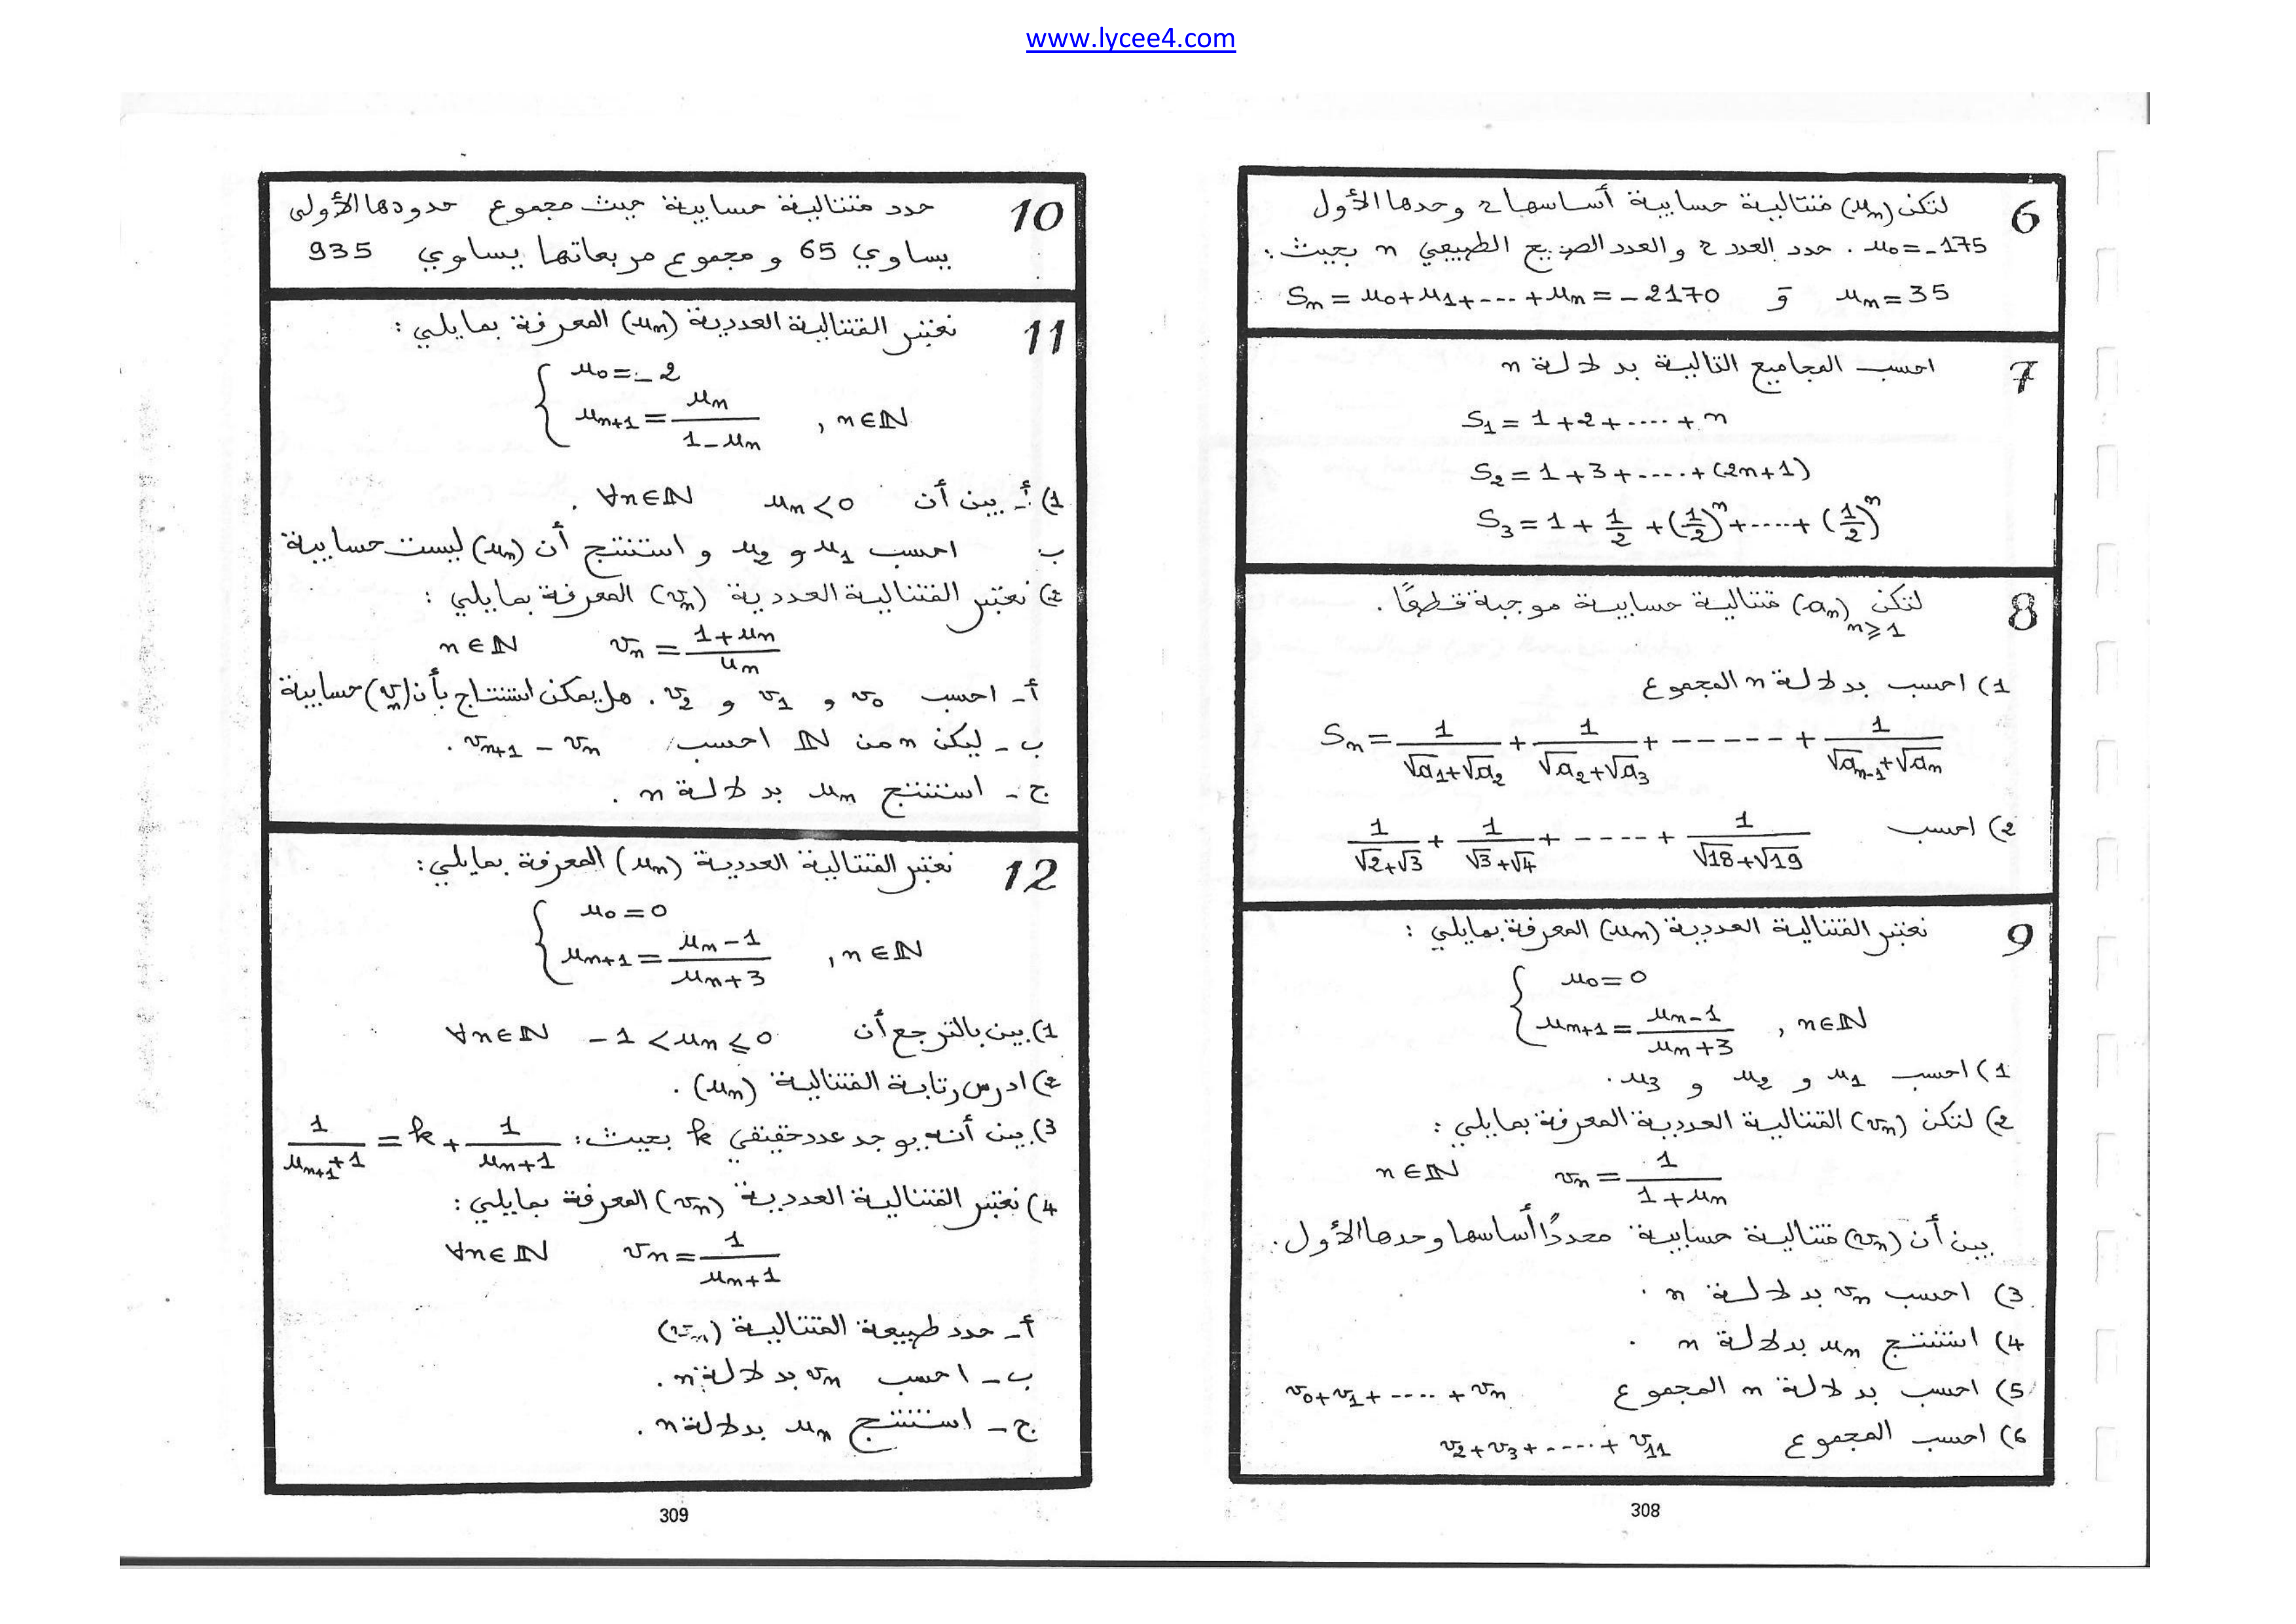 www.lycee4.com
6
لتكن (uₙ) متتالية حسابية أساسها r وحدها الأول
u₀ = -175 . حدد العدد r و العدد الصحيح الطبيعي n بحيث :
Sₙ = u₀ + u₁ + ---- + uₙ = -2170 و uₙ = 35
7
احسب المجاميع التالية بدلالة n
S₁ = 1 + 2 + ..... + n
S₂ = 1 + 3 + ..... + (2n+1)
S₃ = 1 + 1/2 + (1/2)ⁿ + ..... + (1/2)ⁿ
8
لتكن (aₙ)ₙ≥₁ متتالية حسابية موجبة قطعًا .
1) احسب بدلالة n المجموع
Sₙ = 1/(√a₁+√a₂) + 1/(√a₂+√a₃) + ------ + 1/(√aₙ₋₁+√aₙ)
2) احسب 1/(√2+√3) + 1/(√3+√4) + ---- + 1/(√18+√19)
9
نعتبر المتتالية العددية (uₙ) المعرفة بمايلي :
{ u₀ = 0
uₙ₊₁ = (uₙ-1)/(uₙ+3) , n∈ℕ
1) احسب u₁ و u₂ و u₃ .
2) لتكن (vₙ) المتتالية العددية المعرفة بمايلي :
vₙ = 1/(1+uₙ) n∈ℕ
بين أن (vₙ) متتالية حسابية محددًا أساسها وحدها الأول .
3) احسب vₙ بدلالة n .
4) استنتج uₙ بدلالة n .
5) احسب بدلالة n المجموع v₀ + v₁ + ..... + vₙ
6) احسب المجموع v₂ + v₃ + ..... + v₁₁
308
10
حدد متتالية حسابية حيث مجموع حدودها الأولى
يساوي 65 و مجموع مربعاتها يساوي 935
11
نعتبر المتتالية العددية (uₙ) المعرفة بمايلي :
{ u₀ = -2
uₙ₊₁ = uₙ/(1-uₙ) , n∈ℕ
1) أ- بين أن uₙ < 0 ∀n∈ℕ .
ب- احسب u₁ و u₂ و استنتج أن (uₙ) ليست حسابية
2) نعتبر المتتالية العددية (vₙ) المعرفة بمايلي :
vₙ = (1+uₙ)/uₙ n∈ℕ
أ- احسب v₀ و v₁ و v₂ . هل يمكن استنتاج بأن (vₙ) حسابية
ب- ليكن n من ℕ احسب vₙ₊₁ - vₙ .
ج- استنتج uₙ بدلالة n .
12
نعتبر المتتالية العددية (uₙ) المعرفة بمايلي :
{ u₀ = 0
uₙ₊₁ = (uₙ-1)/(uₙ+3) , n∈ℕ
1) بين بالترجع أن -1 < uₙ ≤ 0 ∀n∈ℕ
2) ادرس رتابة المتتالية (uₙ) .
3) بين أنه يوجد عدد حقيقي k بحيث : 1/(uₙ₊₁+1) = k + 1/(uₙ+1)
4) نعتبر المتتالية العددية (vₙ) المعرفة بمايلي :
vₙ = 1/(uₙ+1) ∀n∈ℕ
أ- حدد طبيعة المتتالية (vₙ)
ب- احسب vₙ بدلالة n .
ج- استنتج uₙ بدلالة n .
309